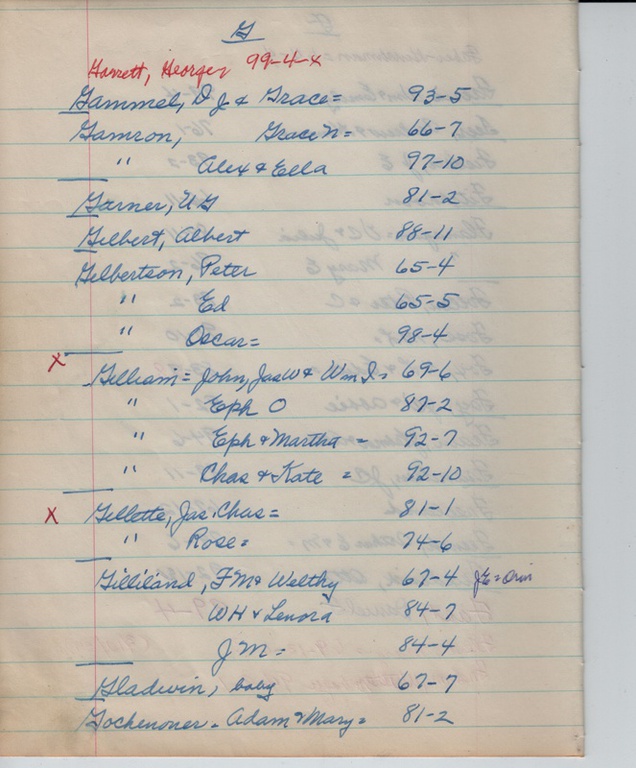 G
Garrett, George 99-4-x
Gammel, D J & Grace = 93-5
Gamron, Grace N = 66-7
" Alex & Ella 97-10
Garner, U G 81-2
Gilbert, Albert 88-11
Gilbertson, Peter 65-4
" Ed 65-5
" Oscar = 98-4
X Gilliam = John, Jas W & Wm I = 69-6
" Eph O 87-2
" Eph & Martha = 92-7
" Chas & Kate = 92-10
X Gillette, Jas. Chas = 81-1
" Rose = 74-6
Gilliland, F M & Welthy 67-4
W H & Lenora 84-7
J M = 84-4
Gladwin, baby 67-7
Gochenoner = Adam & Mary = 81-2